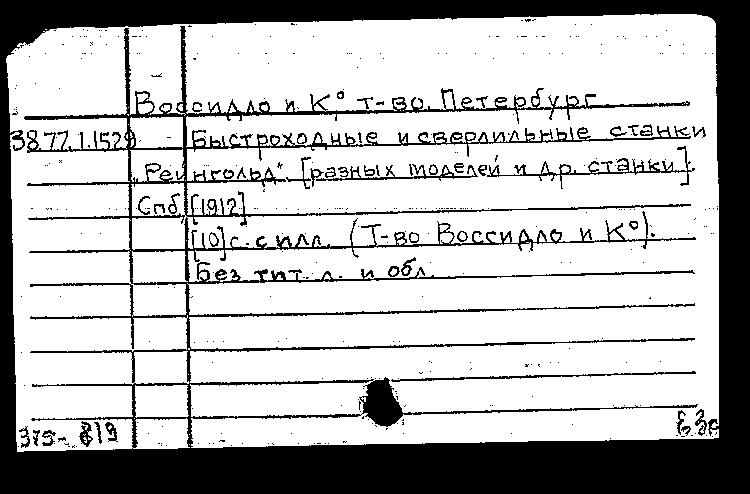 Воссидло и К° т-во. Петербург
38.77.1.1529 Быстроходные и сверлильные станки
„Рейнгольд". [разных моделей и др. станки].
Спб, [1912]
[10] с. с илл. (Т-во Воссидло и К°).
Без тит. л. и обл.